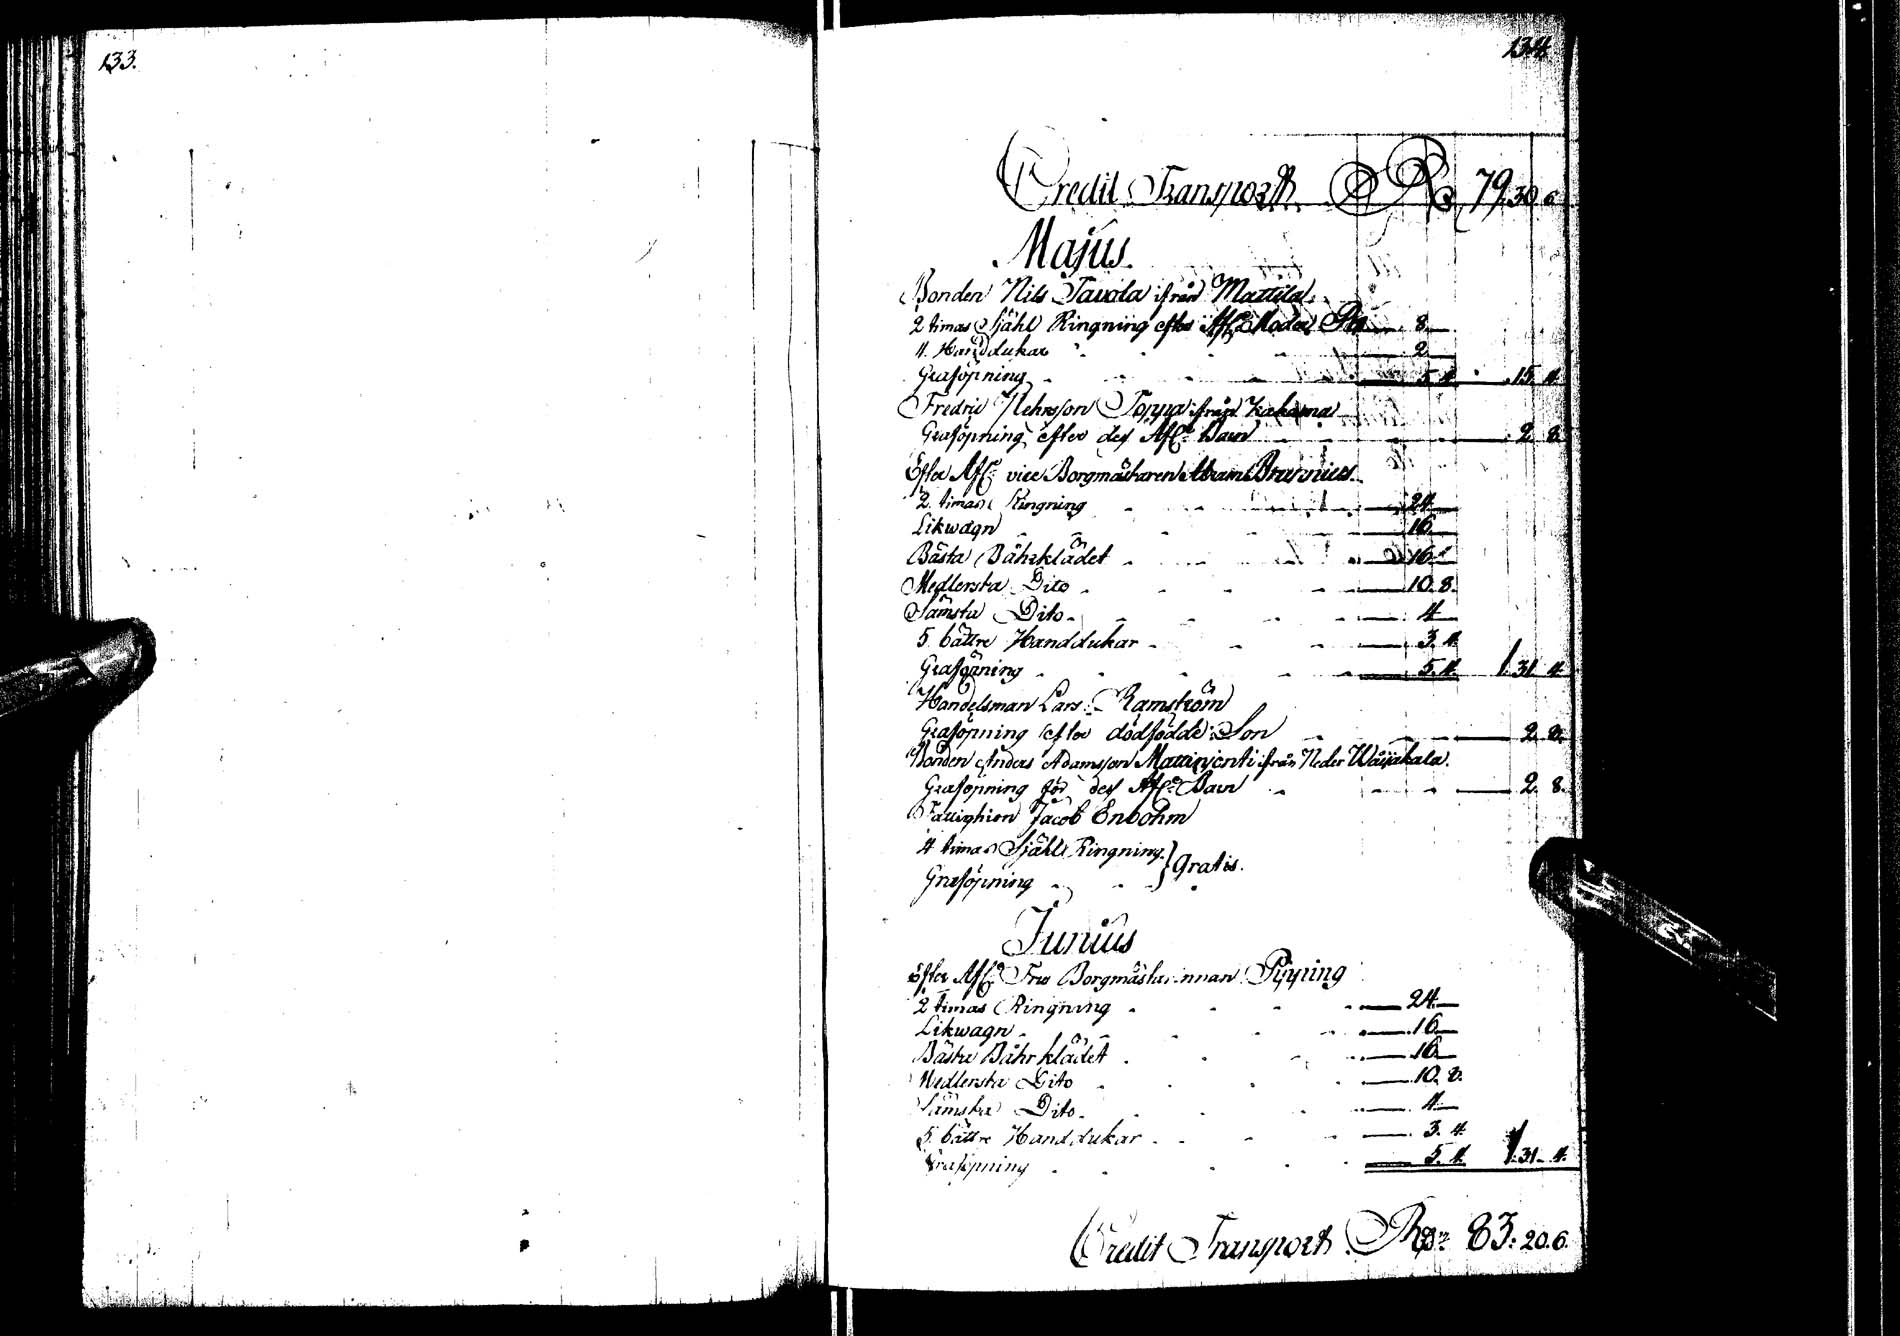 133.
134.
Credit Transport Rd 79. 30. 6.
Majus.
Bonden Nils Tavola ifrån Mattila
2 timas Sjähl Ringning efter Afl. Moder Rd 8
4. Handdukar 2
Graföpning 5. 4. 15. 4.
Fredric Topp ifrån
Graföpning efter des Afl. Barn 2. 8.
Efter Afl. vice Borgmästaren
2. timas Ringning 24
Likwagn 16
Bästa Bährklädet 16
Medlersta Dito 10. 8.
Sämsta Dito 4
5. bättre Handdukar 3. 4.
Graföpning 5. 4. 1. 31. 4
Handelsman Lars Ramström
Graföpning efter dödfödde Son 2. 8.
Bonden Anders Adamsson ifrån Neder
Graföpning för des Afl. Barn 2. 8.
Fattighion Jacob Enbohm
4 timas Sjähl Ringning
Graföpning } Gratis.
Junius
Efter Afl. Fru Borgmästarinnan Pipping
2 timas Ringning 24
Likwagn 16
Bästa Bähr klädet 16
Medlersta Dito 10. 8.
Sämsta Dito 4
5. bättre Handdukar 3. 4.
Graföpning 5. 4. 1. 31. 4.
Credit Transport Rd 83. 20. 6.